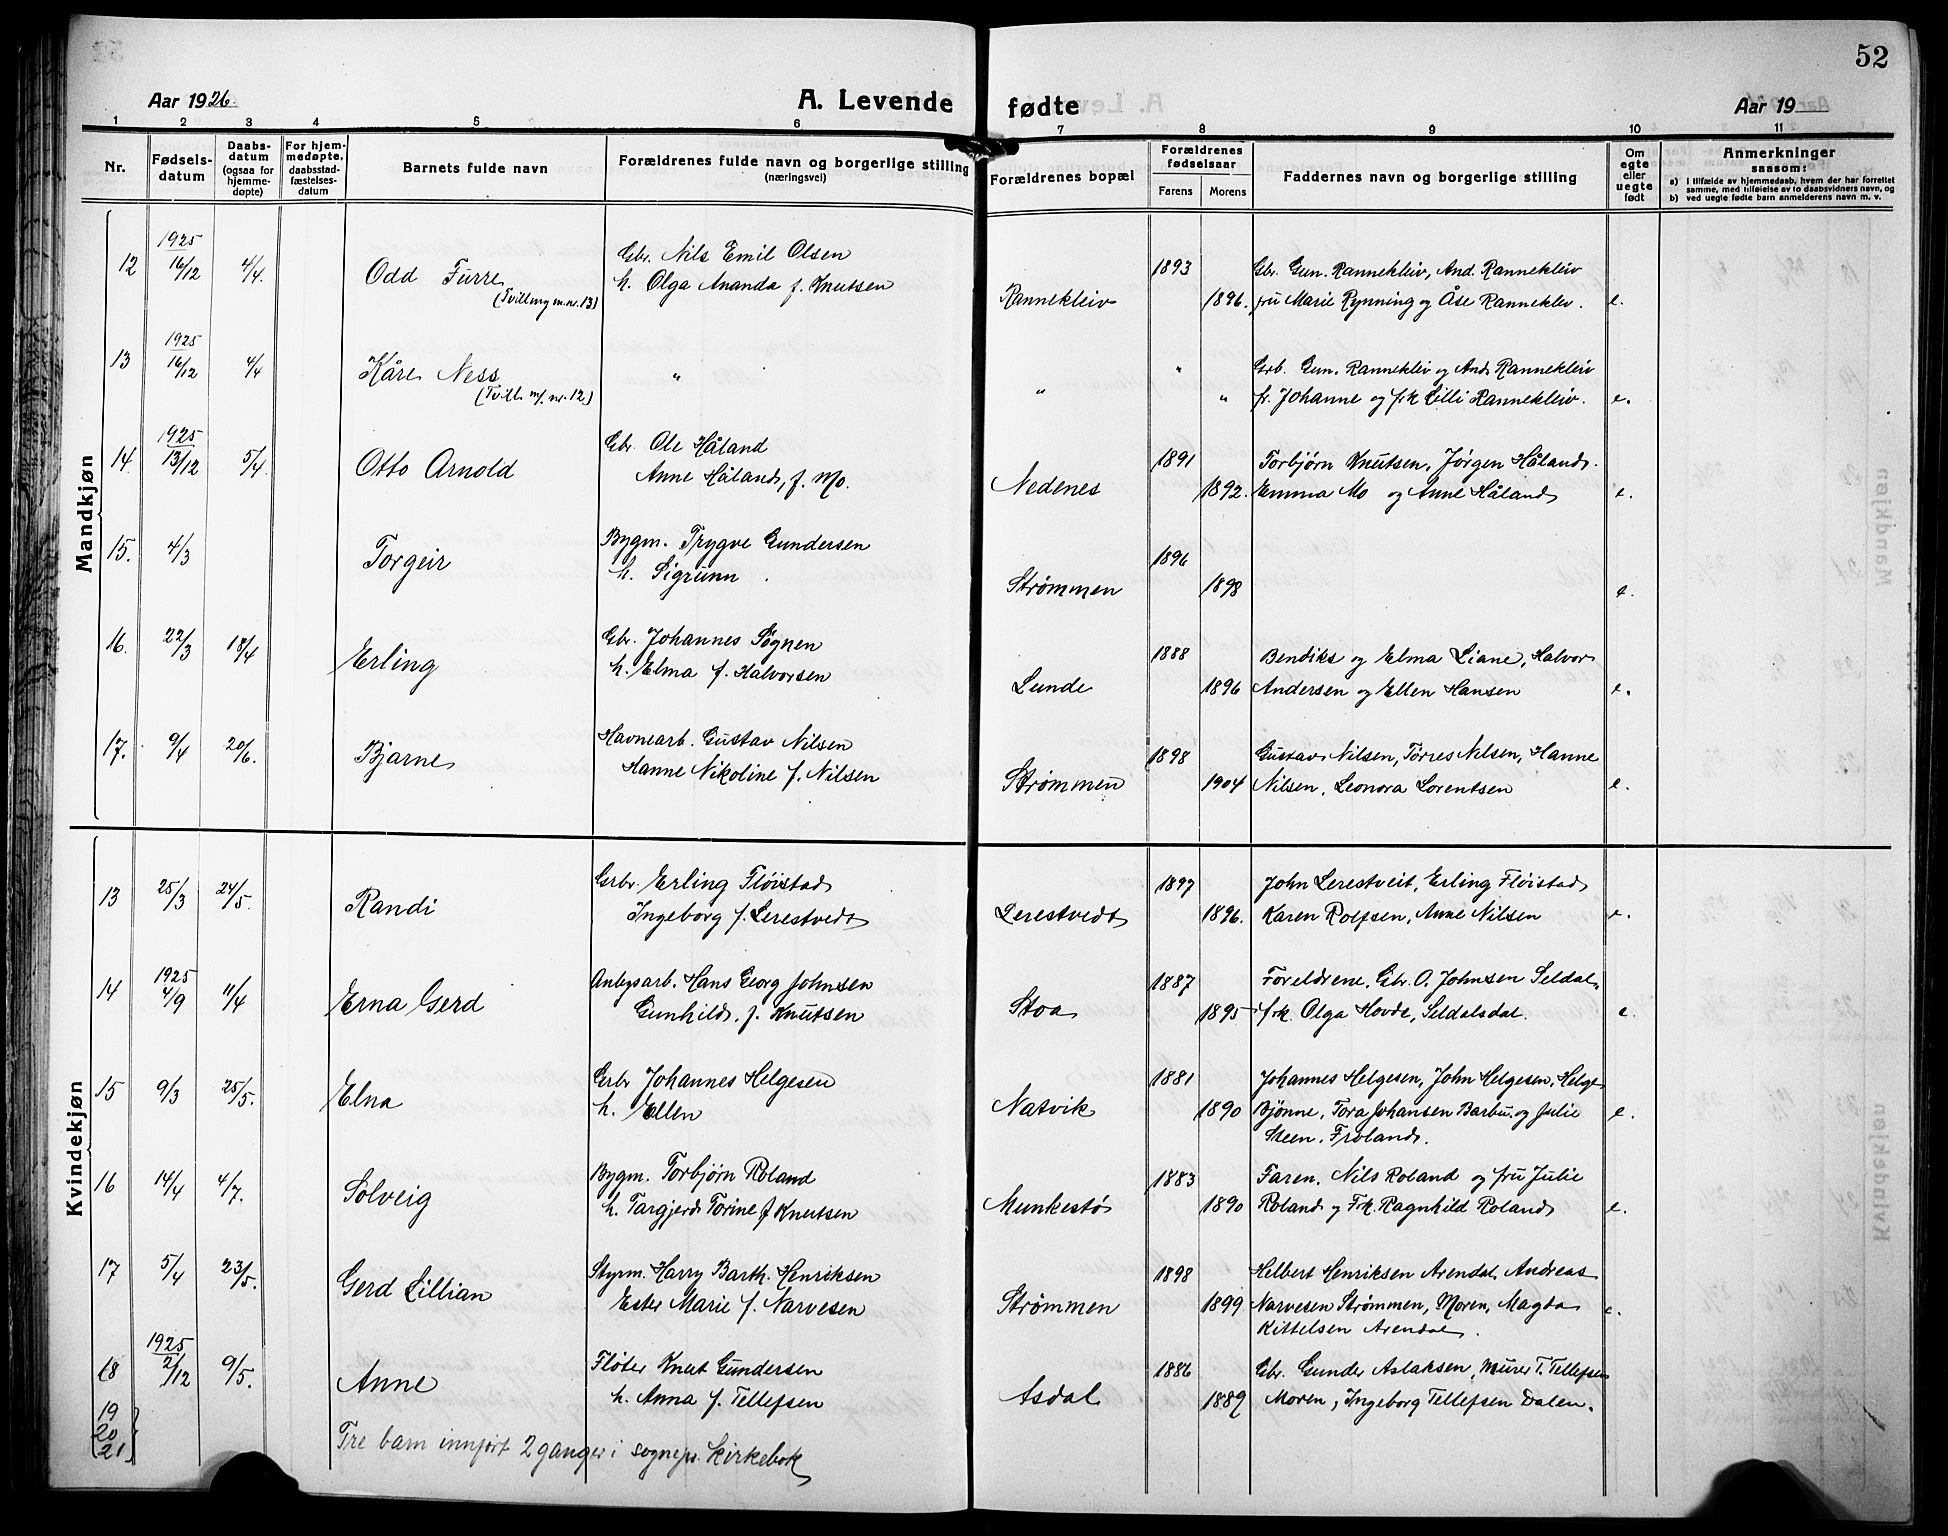 52
Aar 1926.
A. Levende fødte
Aar 19
1 2 3 4 5 6 7 8 9 10 11
Nr.
Fødsels-
datum
Daabs-
datum
(ogsaa for
hjemme-
døpte)
For hjem-
medøpte,
daabsstad-
fæstelses-
datum
Barnets fulde navn
Forældrenes fulde navn og borgerlige stilling
(næringsvei)
Forældrenes bopæl
Forældrenes
fødselsaar
Farens Morens
Faddernes navn og borgerlige stilling
Om
egte
eller
uegte
født
Anmerkninger
saasom:
a) i tilfælde av hjemmedaab, hvem der har forrettet
samme, med tilføielse av to daabsvidners navn, og
b) ved uegte fødte barn anmelderens navn m. v.
Mandkjøn
12 1925 16/12 4/4. Odd Furre (Tvilling m. nr. 13)
Gbr. Nils Emil Olsen
h. Olga Ananda f. Knutsen
Rannekleiv 1893 1896.
Gbr. Gun. Rannekleiv, And. Rannekleiv
fru Marie Rynning og Åse Rannekleiv. e.
13 1925 16/12 4/4 Kåre Ness (Tvill. m. nr. 12.)
" " " "
Grb. Gun. Rannekleiv og And. Rannekleiv
fr. Johanne og frk Lilli Rannekleiv. e.
14. 1925 13/12 5/4. Otto Arnold
Gbr. Ole Håland
Anne Håland, f. Mo.
Nedenes 1891 1892.
Torbjørn Knutsen, Jørgen Håland.
Emma Mo og Anne Håland e.
15. 4/3 Torgeir
Bygm. Trygve Gundersen
h. Sigrunn .
Strømmen 1896 1898 e.
16. 22/3 18/4 Erling
Gbr. Johannes Søgnen
h. Elma f. Halvorsen
Lunde 1888 1896
Bendiks og Elma Liane, Halvor
Andersen og Ellen Hansen e.
17. 9/4 20/6. Bjarne
Havnearb. Gustav Nilsen
Hanne Nikoline f. Nilsen
Strømmen 1898 1904
Gustav Nilsen, Torres Nilsen, Hanne
Nilsen, Leonora Lorentsen e.
Kvindekjøn
13 25/3 24/5. Randi
Grbr. Erling Fløistad
Ingeborg f. Lerestvedt
Lerestvedt 1897 1896.
John Lerestveit, Erling Fløistad
Karen Rolfsen, Anne Nilsen e.
14 1925 4/9 11/4 Erna Gerd
Anlegsarb. Hans Georg Johnsen
Gunhild, f. Knutsen
Stoa 1887 1895
Foreldrene, Gbr. O. Johnsen Seldal,
frk. Olga Hovde, Seldalsdal. e.
15 9/3 25/5. Elna
Grbr Johannes Helgesen
h. Ellen
Natvik 1881 1890
Johannes Helgesen, John Helgesen, Helge
Bjønne, Tora Johansen Barbu. og Julie
Steen, Froland. e.
16 14/4 4/7. Solveig
Bygm. Torbjørn Roland
h. Targjerd Torine f Knutsen
Munkestø 1883 1890
Faren, Nils Roland og fru Julie
Roland og Frk. Ragnhild Roland e.
17 5/4 23/5. Gerd Lillian
Styrm. Harry Barth. Henriksen
Ester Marie f. Narvesen
Strømmen 1898 1899
Helbert Henriksen Arendal, Andreas
Narvesen Strømmen, Moren, Magda
Kittelsen Arendal. e.
18 1925 2/12 9/5. Anne
Fløter Knut Gundersen
h. Anna f. Tellefsen
Asdal 1886 1889
Gbr. Gunder Aslaksen, Murer T. Tellefsen
Moren, Ingeborg Tellefsen Dalen.
19
20
21
Tre barn innført 2 ganger i sognepr. kirkebok